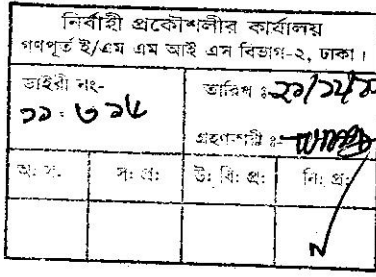 নির্বাহী প্রকৌশলীর কার্যালয়
গণপূর্ত ই/এম এম আই এস বিভাগ-২, ঢাকা।
ডাইরী নং- তারিখ ঃ ২১/১২/
গ্রহণকারী ঃ-
অঃ সঃ সঃ প্রঃ উঃ বিঃ প্রঃ নিঃ প্রঃ